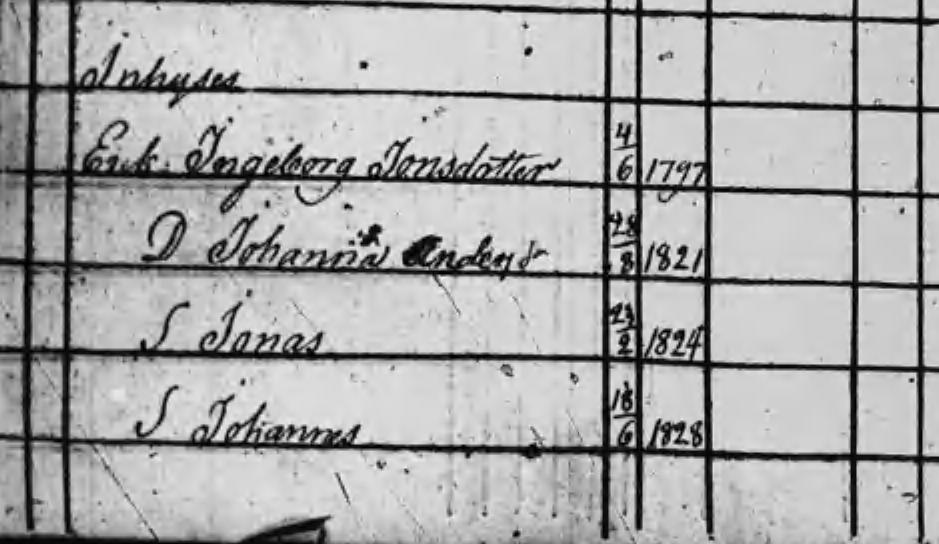 Inhyses
Enk. Ingeborg Jonsdotter 4/6 1797
D Johanna Anders dr 28/8 1821
S Jonas 23/2 1824
S Johannes 18/6 1828